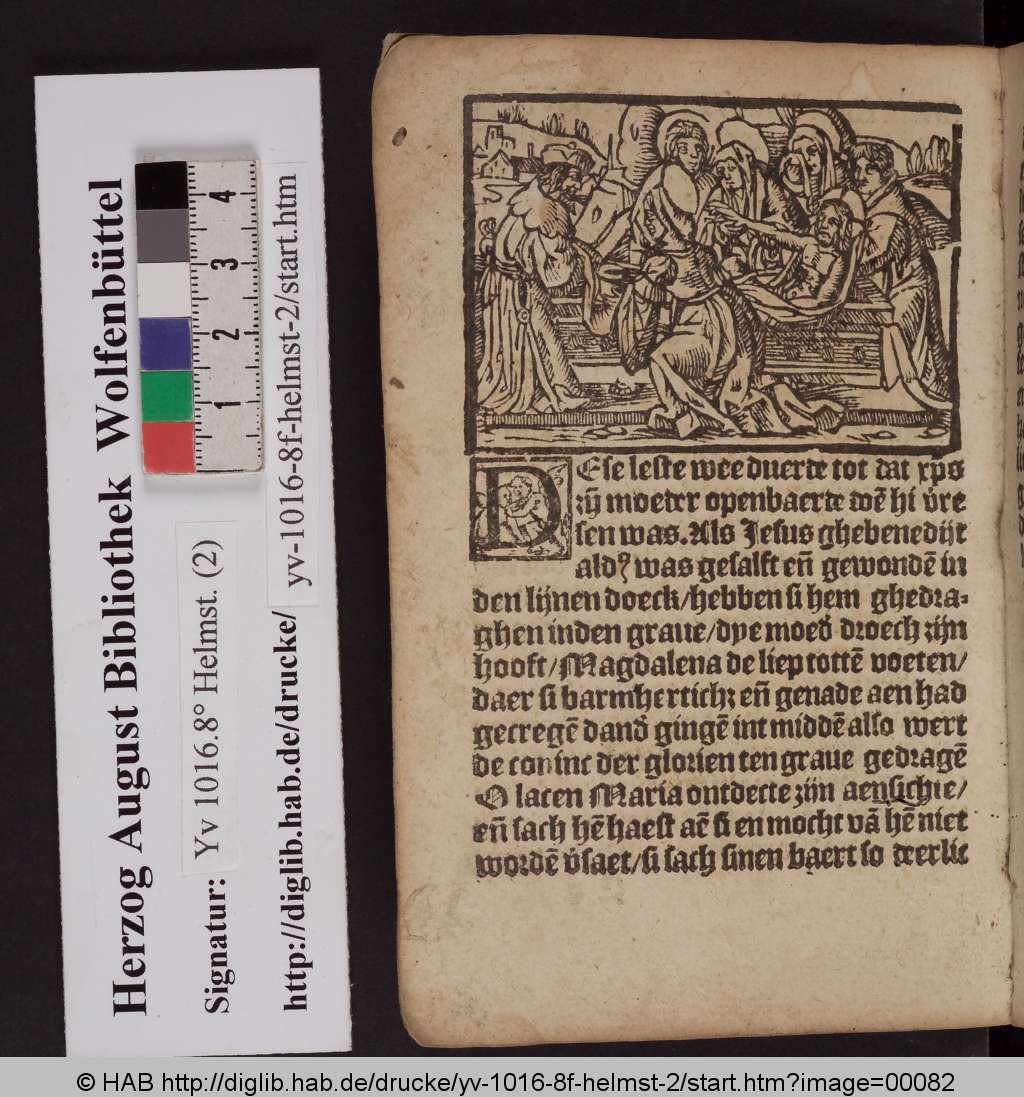 Herzog August Bibliothek Wolfenbüttel
Signatur: Yv 1016.8° Helmst. (2)
http://diglib.hab.de/drucke/ yv-1016-8f-helmst-2/start.htm
1 2 3 4
DEse leste wee duerde tot dat xp̄s
zijn̄ moeder openbaerde dē hi v̄re
sen was. Als Jesus ghebenedijt
ald⁹ was gesalft en̄ gewondē in
den lijnen doeck/hebben si hem ghedra⸗
ghen inden graue/dye moed̄ droech zijn
hooft/Magdalena de liep tottē voeten/
daer si barmhertichʒ en̄ genade aen had
gecregē dand̄ gingē int middē also wert
de coninc der glorien ten graue gedragē
O lacen Maria ontdecte zijn aensichte/
en̄ sach hē haest aē si en mocht vā hē niet
wordē v̄saet/si sach sinen baert so deerlic
© HAB http://diglib.hab.de/drucke/yv-1016-8f-helmst-2/start.htm?image=00082